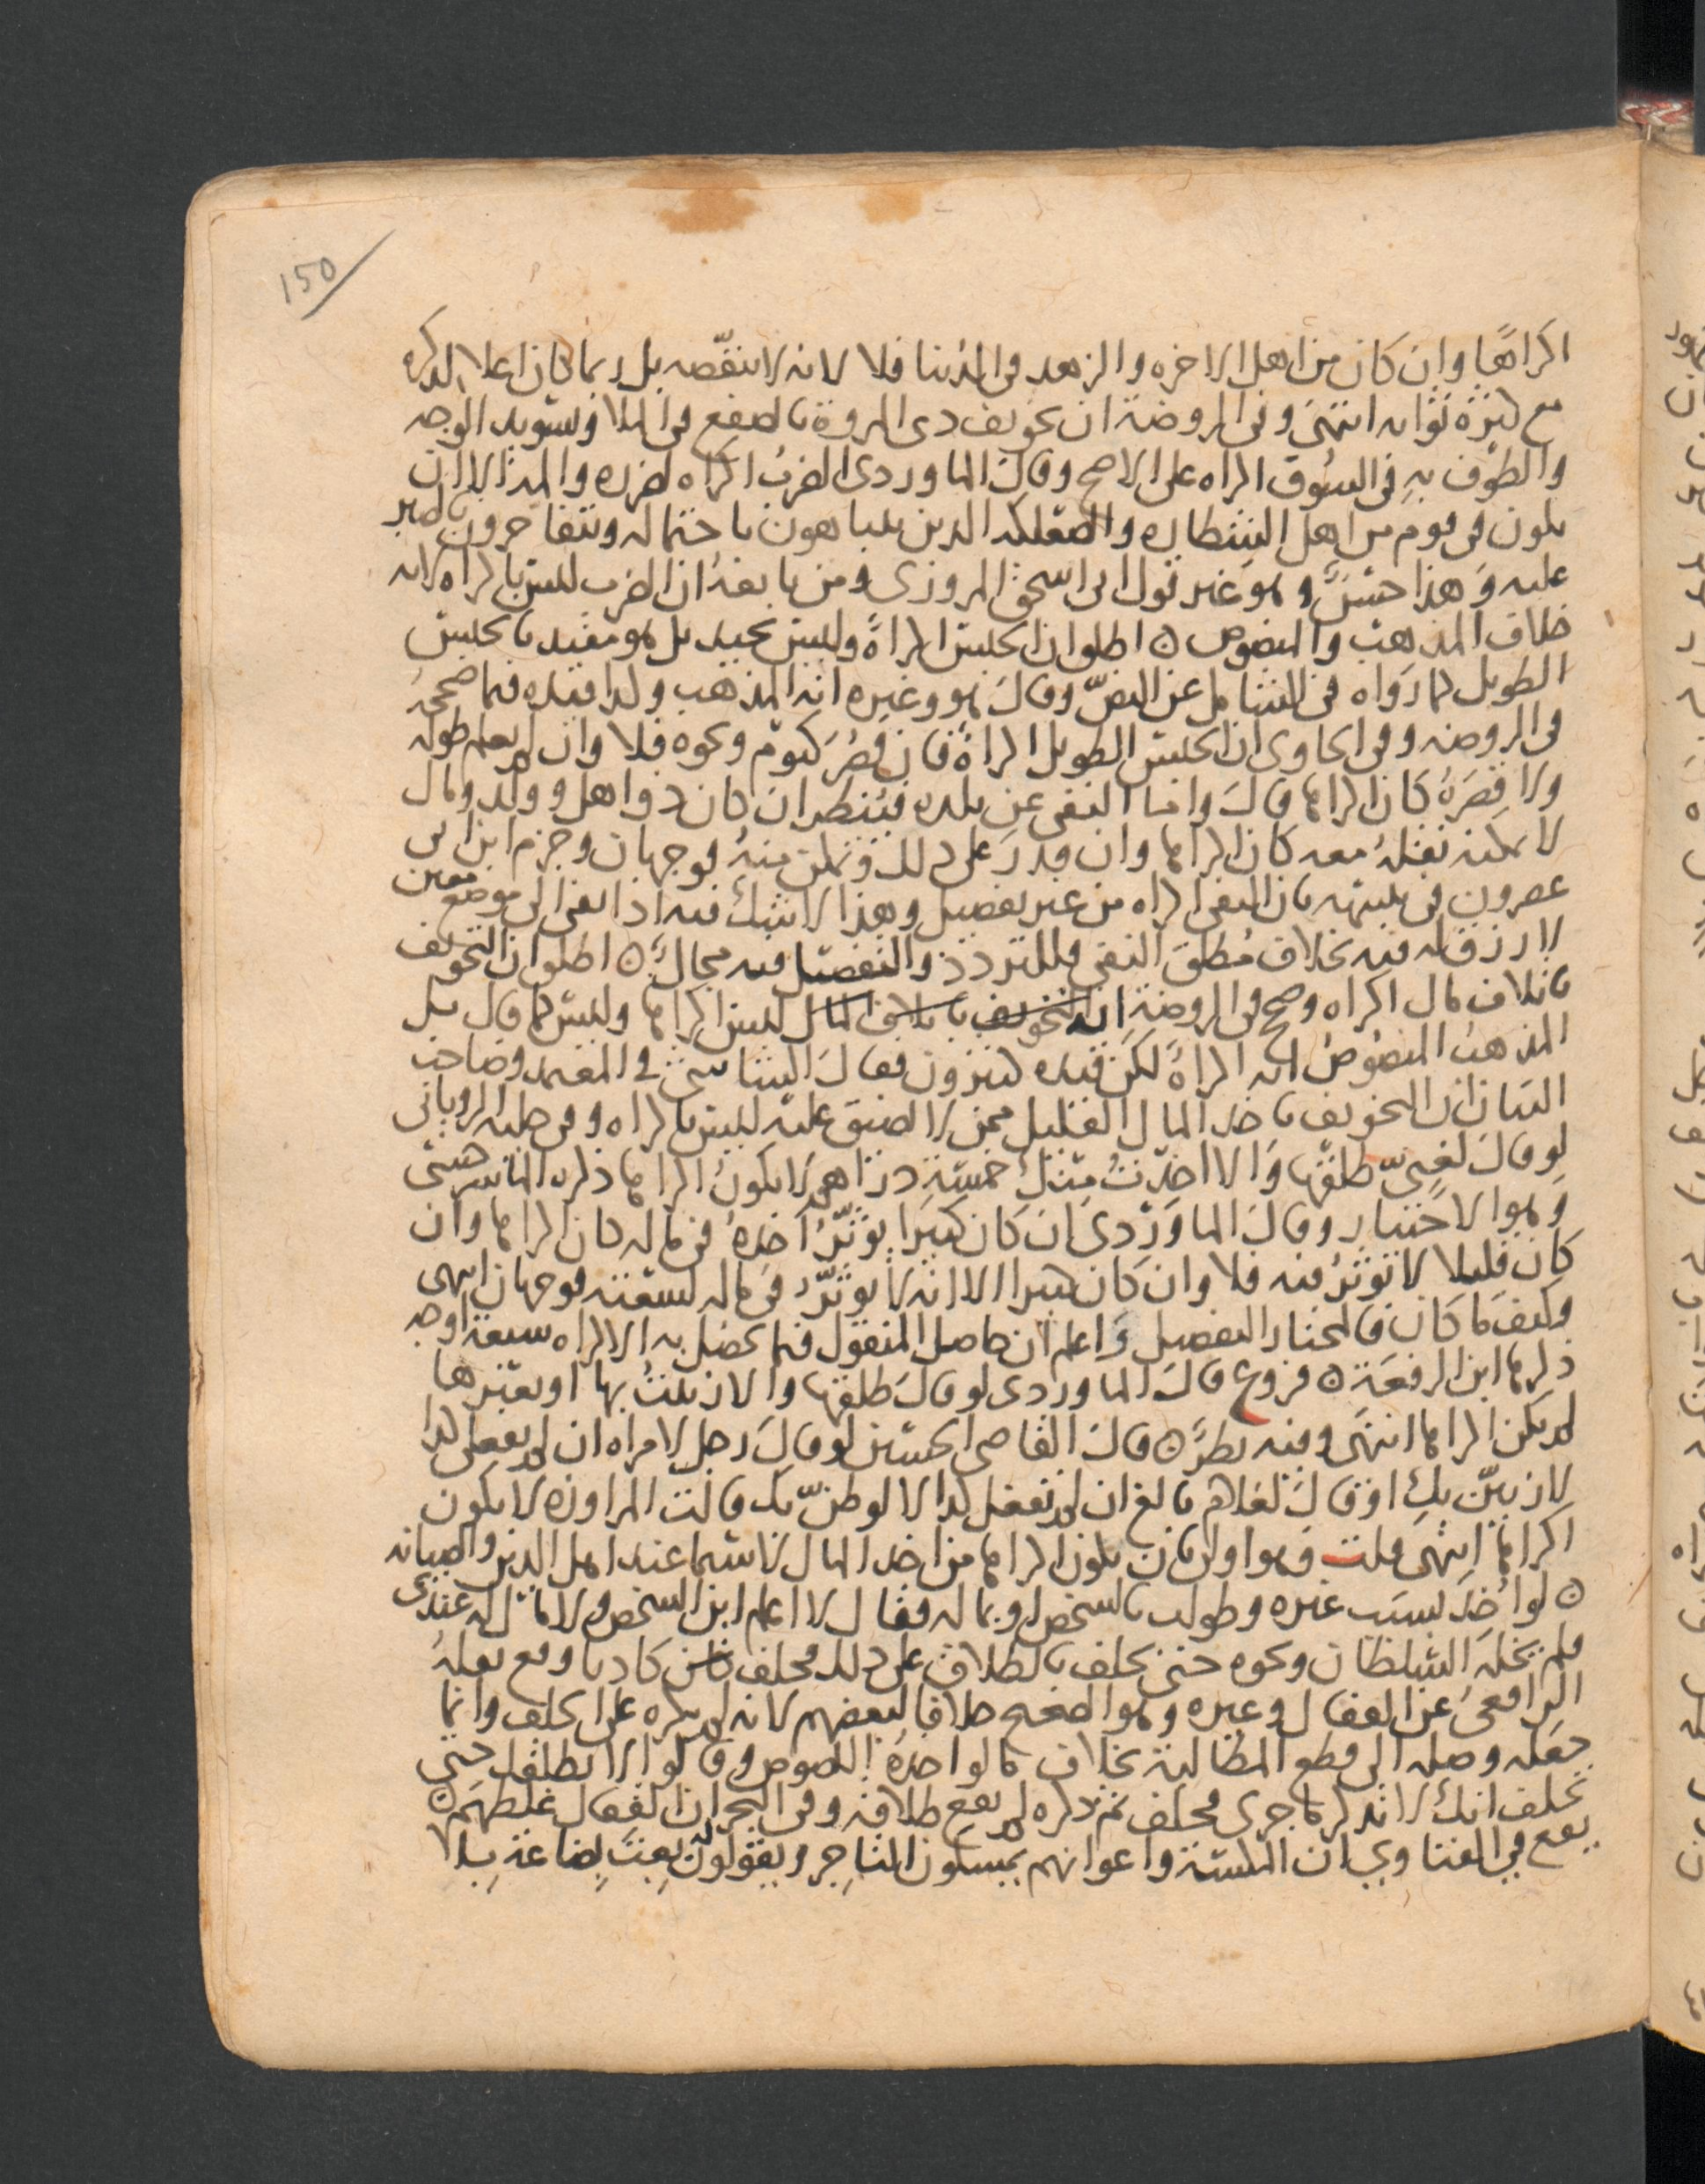 150
اكراها وان كان من اهل الاخره والزهد في الدنيا فلا لانه لا ينقصه بل ربما كان اعلا لذكره
مع كثرة ثوابه انتهى وفي الروضة ان تخويف ذى المروة بالصفع في الملا وتسويد الوجه
والطوف به في السوق اكراه على الاصح وقال الماوردى الضرب اكراه لضرره والمه الا ان
يكون في قوم من اهل الشطاره والصعلكه الذين يتباهون باحتماله ويتفاخرون بالصبر
عليه وهذا حسن وهو غير قول ابى اسحق المروزى ومن تابعه ان الضرب ليس باكراه لانه
خلاف المذهب والنصوص ٥ اطلق ان الحبس اكراه وليس بجيد بل هو مقيد بالحبس
الطويل كما رواه في الشامل عن النص وقال هو وغيره انه المذهب ولذا قيده فيما صححه
في الروضه وفي الحاوى ان الحبس الطويل اكراه فان قصر كيوم ونحوه فلا وان لم يعلم طوله
ولا قصره كان اكراها قال واما النفى عن بلده فينظر ان كان ذو اهل وولد ومال
لا يمكنه نقله معه كان اكراها وان قدر على ذلك وتمكن منه فوجهان وجزم ابن ابى
عصرون في بان النفى اكراه من غير تفصيل وهذا لا شك فيه اذا نفى الى موضع معين
لا رزق له فيه بخلاف مطلق النفى فللتردد والتفصيل فيه مجال ٥ اطلق ان التخويف
باتلاف مال اكراه وصحح في الروضة انه التخويف باتلاف المال ليس اكراها وليس كما قال بل
المذهب المنصوص انه اكراه لكن قيده كثيرون فقال الشاشى في المعتمد وصاحب
البيان ان التخويف باخذ المال القليل ممن لا يضيق عليه ليس باكراه وفي حليه الرويانى
لو قال لغنى طلقها والا اخذت منك خمسة دراهم لا يكون اكراها ذكره الماسرجسى
وهو الاختيار وقال الماوردى ان كان كثيرا يوثر اخذه في ماله كان اكراها وان
كان قليلا لا يوثر فيه فلا وان كان كثيرا الا انه لا يوثر في ماله لسعته فوجهان انتهى
وكيف ما كان فالمختار التفصيل واعلم ان حاصل المنقول فيما يحصل به الاكراه سبعة اوجه
ذكرها ابن الرفعة ٥ فروع قال الماوردى لو قال طلقها والا زنيت بها او بغيرها
لم يكن اكراها انتهى وفيه نظر ٥ قال القاضى الحسين لو قال رجل لامراه ان لم تفعلى كذا
لازنين بك او قال لغلام بالغ ان لم تفعل كذا لالوطن بك قالت المراوزه لا يكون
اكراها انتهى قلت وهو اولى بان يكون اكراها من اخذ المال لا سيما عند اهل الدين والصيانه
٥ لو اخذ بسبب غيره وطولب بالشخص او بماله وقال لا اعلم اين الشخص ولا مال له عندى
فلم يخله السلطان ونحوه حتى يحلف بالطلاق على ذلك فحلف كاذبا وقع نقله
الرافعى عن القفال وغيره وهو الصحيح خلافا لبعضهم لانه لم يكره على الحلف وانما
جعله وصله الى قطع المطالبة بخلاف ما لو اخذه اللصوص وقالوا لا نطلقك حتى
تحلف انك لا تذكر ما جرى فحلف ثم ذكره لم يقع طلاقه وفي البحر ان القفال غلطهم ٥
يقع في الفتاوى ان المكسه واعوانهم يمسكون التاجر ويقولون بعت بضاعة بلا